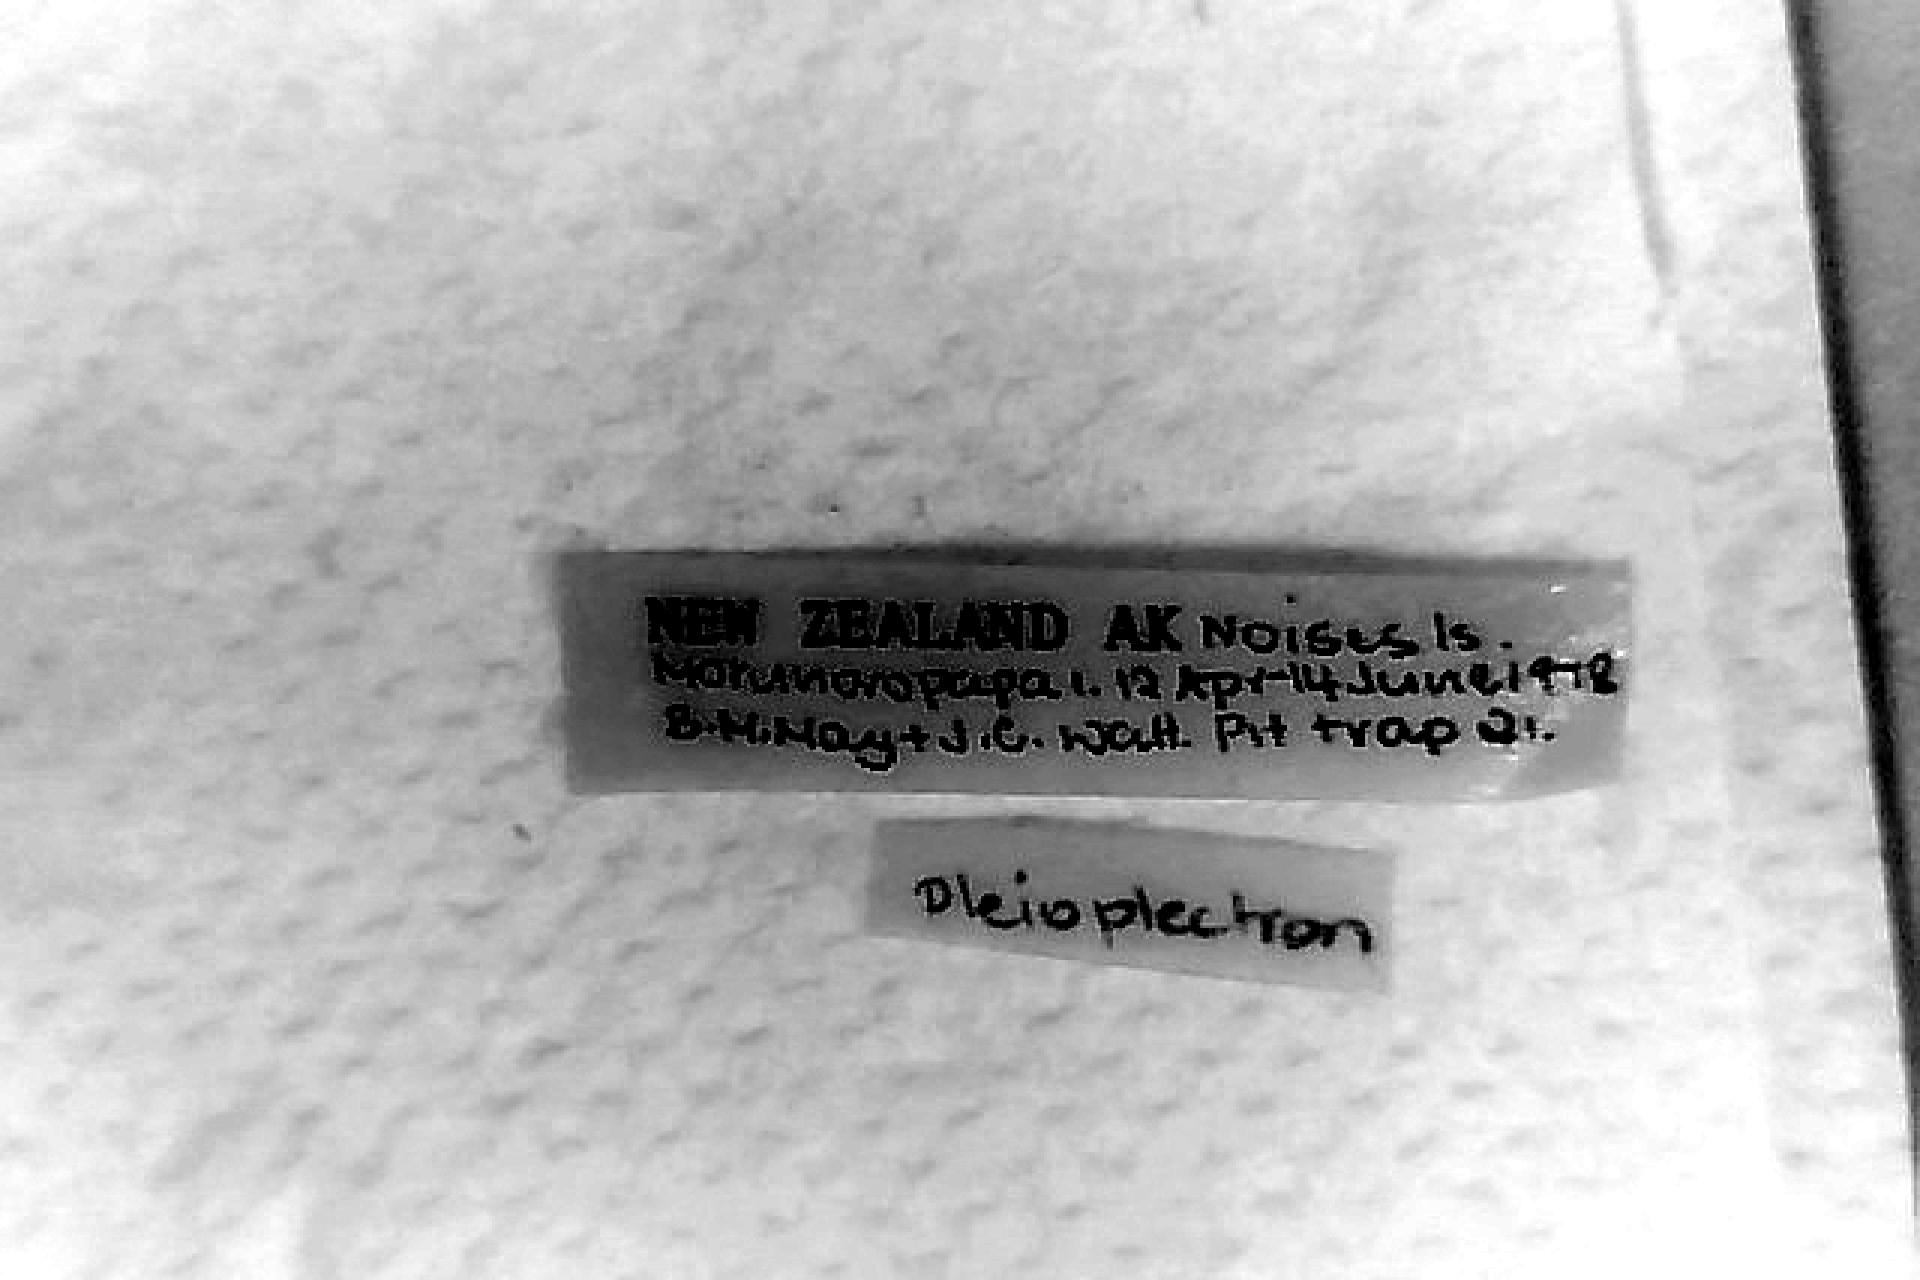 NEW ZEALAND AK Noises Is.
Motuhoropapa I. 12 Apr-14 June 1978
B.M. May + J.C. Watt. Pit trap 21.
Pleioplectron